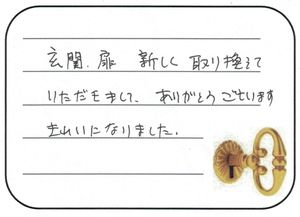 玄関、扉 新しく 取り換えて
いただきまして、ありがとうございます
きれいになりました。